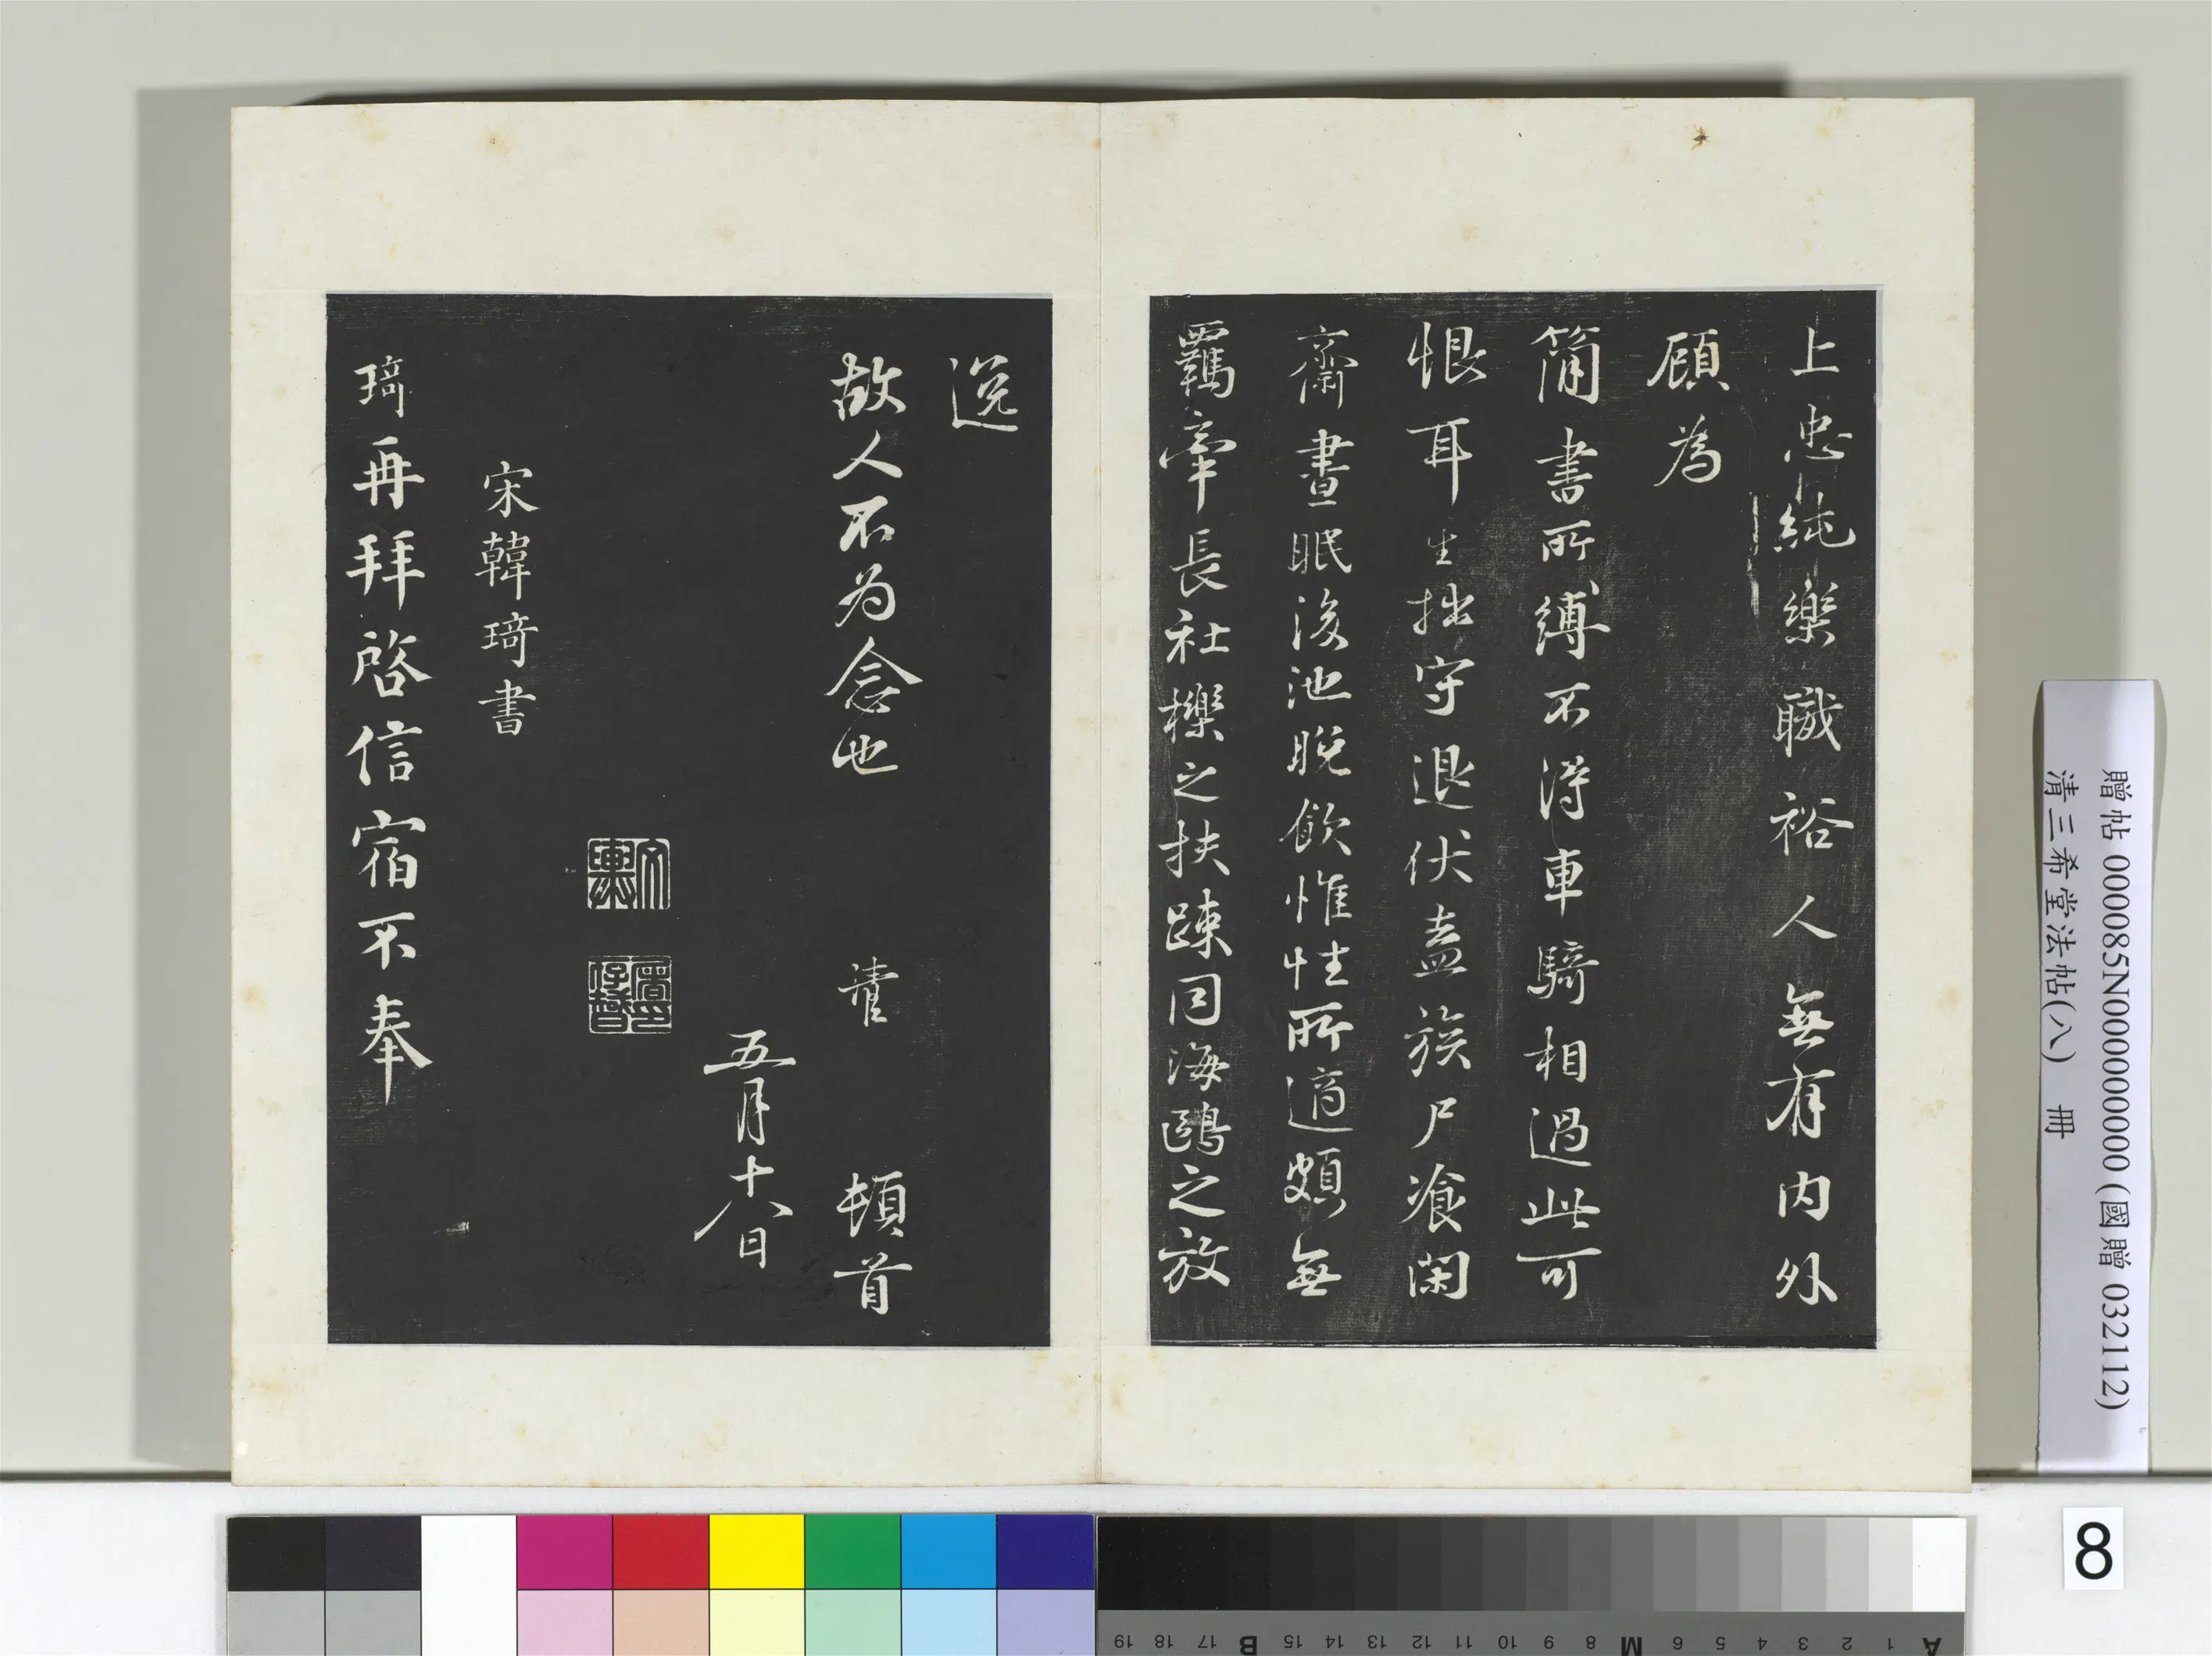 上忠純樂職裕人無有内外
顧為
簡書所縛不得車騎相過此可
恨耳生拙守退伏盍族尸飡閑
齋晝眠後池晚飲惟性所適頗無
羈牽長社櫟之扶踈同海鷗之放
逸
故人不為念也 頓首
五月十八日
宋韓琦書
琦再拜啓信宿不奉
贈帖 000085N000000000 (國贈 032112)
清三希堂法帖(八) 冊
8
A 1 2 3 4 5 6 M 8 9 10 11 12 13 14 15 B 17 18 19